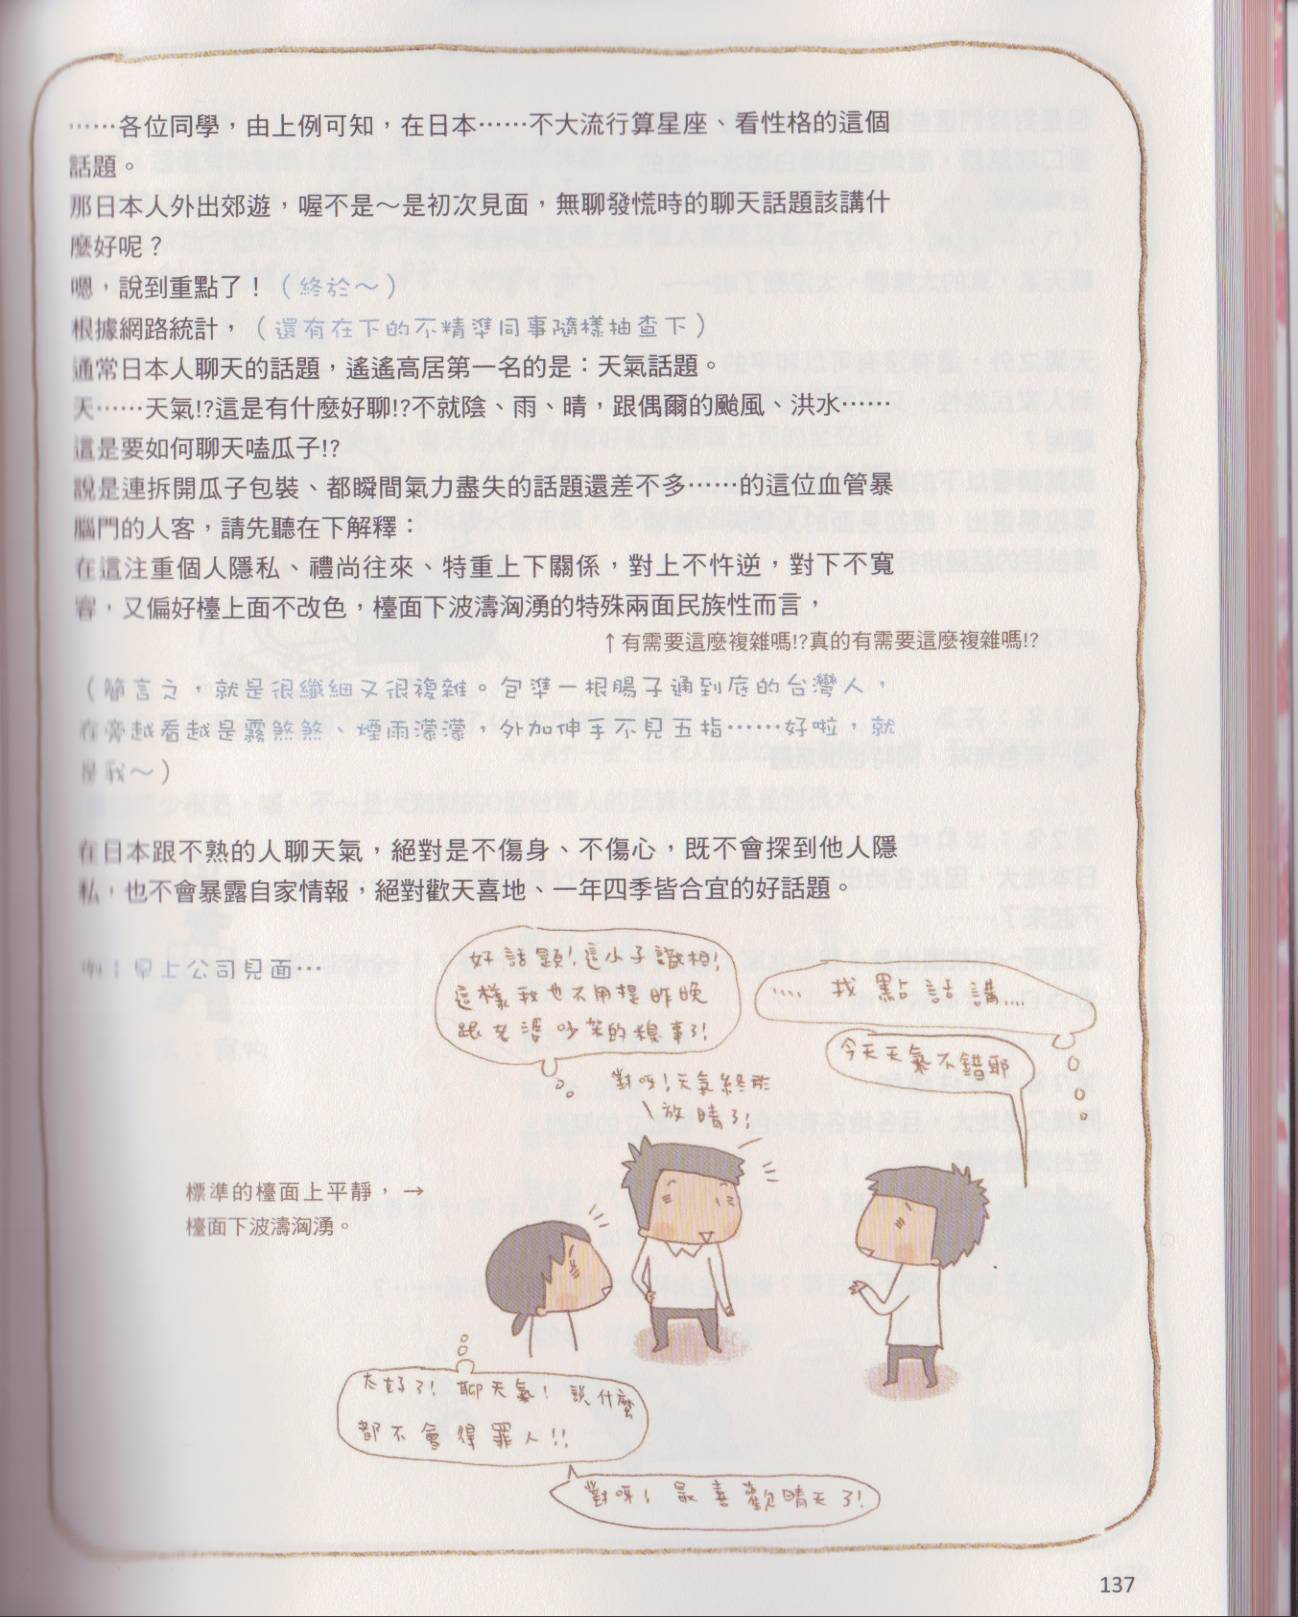 ……各位同學，由上例可知，在日本……不大流行算星座、看性格的這個
話題。
那日本人外出郊遊，喔不是～是初次見面，無聊發慌時的聊天話題該講什
麼好呢？
嗯，說到重點了！（終於～）
根據網路統計，（還有在下的不精準同事隨樣抽查下）
通常日本人聊天的話題，遙遙高居第一名的是：天氣話題。
天……天氣!?這是有什麼好聊!?不就陰、雨、晴，跟偶爾的颱風、洪水……
這是要如何聊天嗑瓜子!?
說是連拆開瓜子包裝、都瞬間氣力盡失的話題還差不多……的這位血管暴
腦門的人客，請先聽在下解釋：
在這注重個人隱私、禮尚往來、特重上下關係，對上不忤逆，對下不寬
容，又偏好檯上面不改色，檯面下波濤洶湧的特殊兩面民族性而言，
↑有需要這麼複雜嗎!?真的有需要這麼複雜嗎!?
（簡言之，就是很纖細又很複雜。包準一根腸子通到底的台灣人，
在旁越看越是霧煞煞、煙雨濛濛，外加伸手不見五指……好啦，就
是我～）
在日本跟不熟的人聊天氣，絕對是不傷身、不傷心，既不會探到他人隱
私，也不會暴露自家情報，絕對歡天喜地、一年四季皆合宜的好話題。
例：早上公司見面…
好話題!這小子識相!
這樣我也不用提昨晚
跟老婆吵架的糗事了!
.... 找點話講....
今天天氣不錯耶
對呀!天氣終於
放晴了!
標準的檯面上平靜，→
檯面下波濤洶湧。
太好了! 聊天氣! 說什麼
都不會得罪人!!
對呀! 最喜歡晴天了!
137